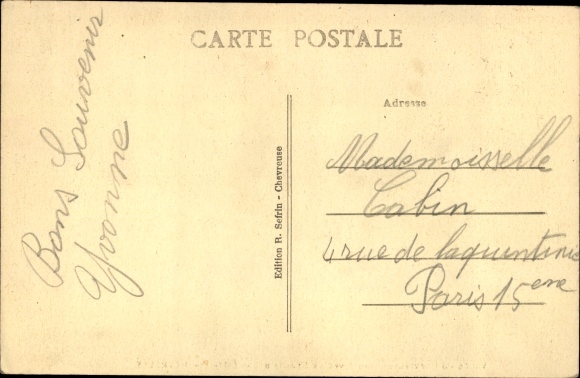 CARTE POSTALE
Bons Souvenir
Yvonne
Edition R. Sefrin - Chevreuse
Adresse
Mademoisselle
Cabin
4 rue de laquentinie
Paris 15eme